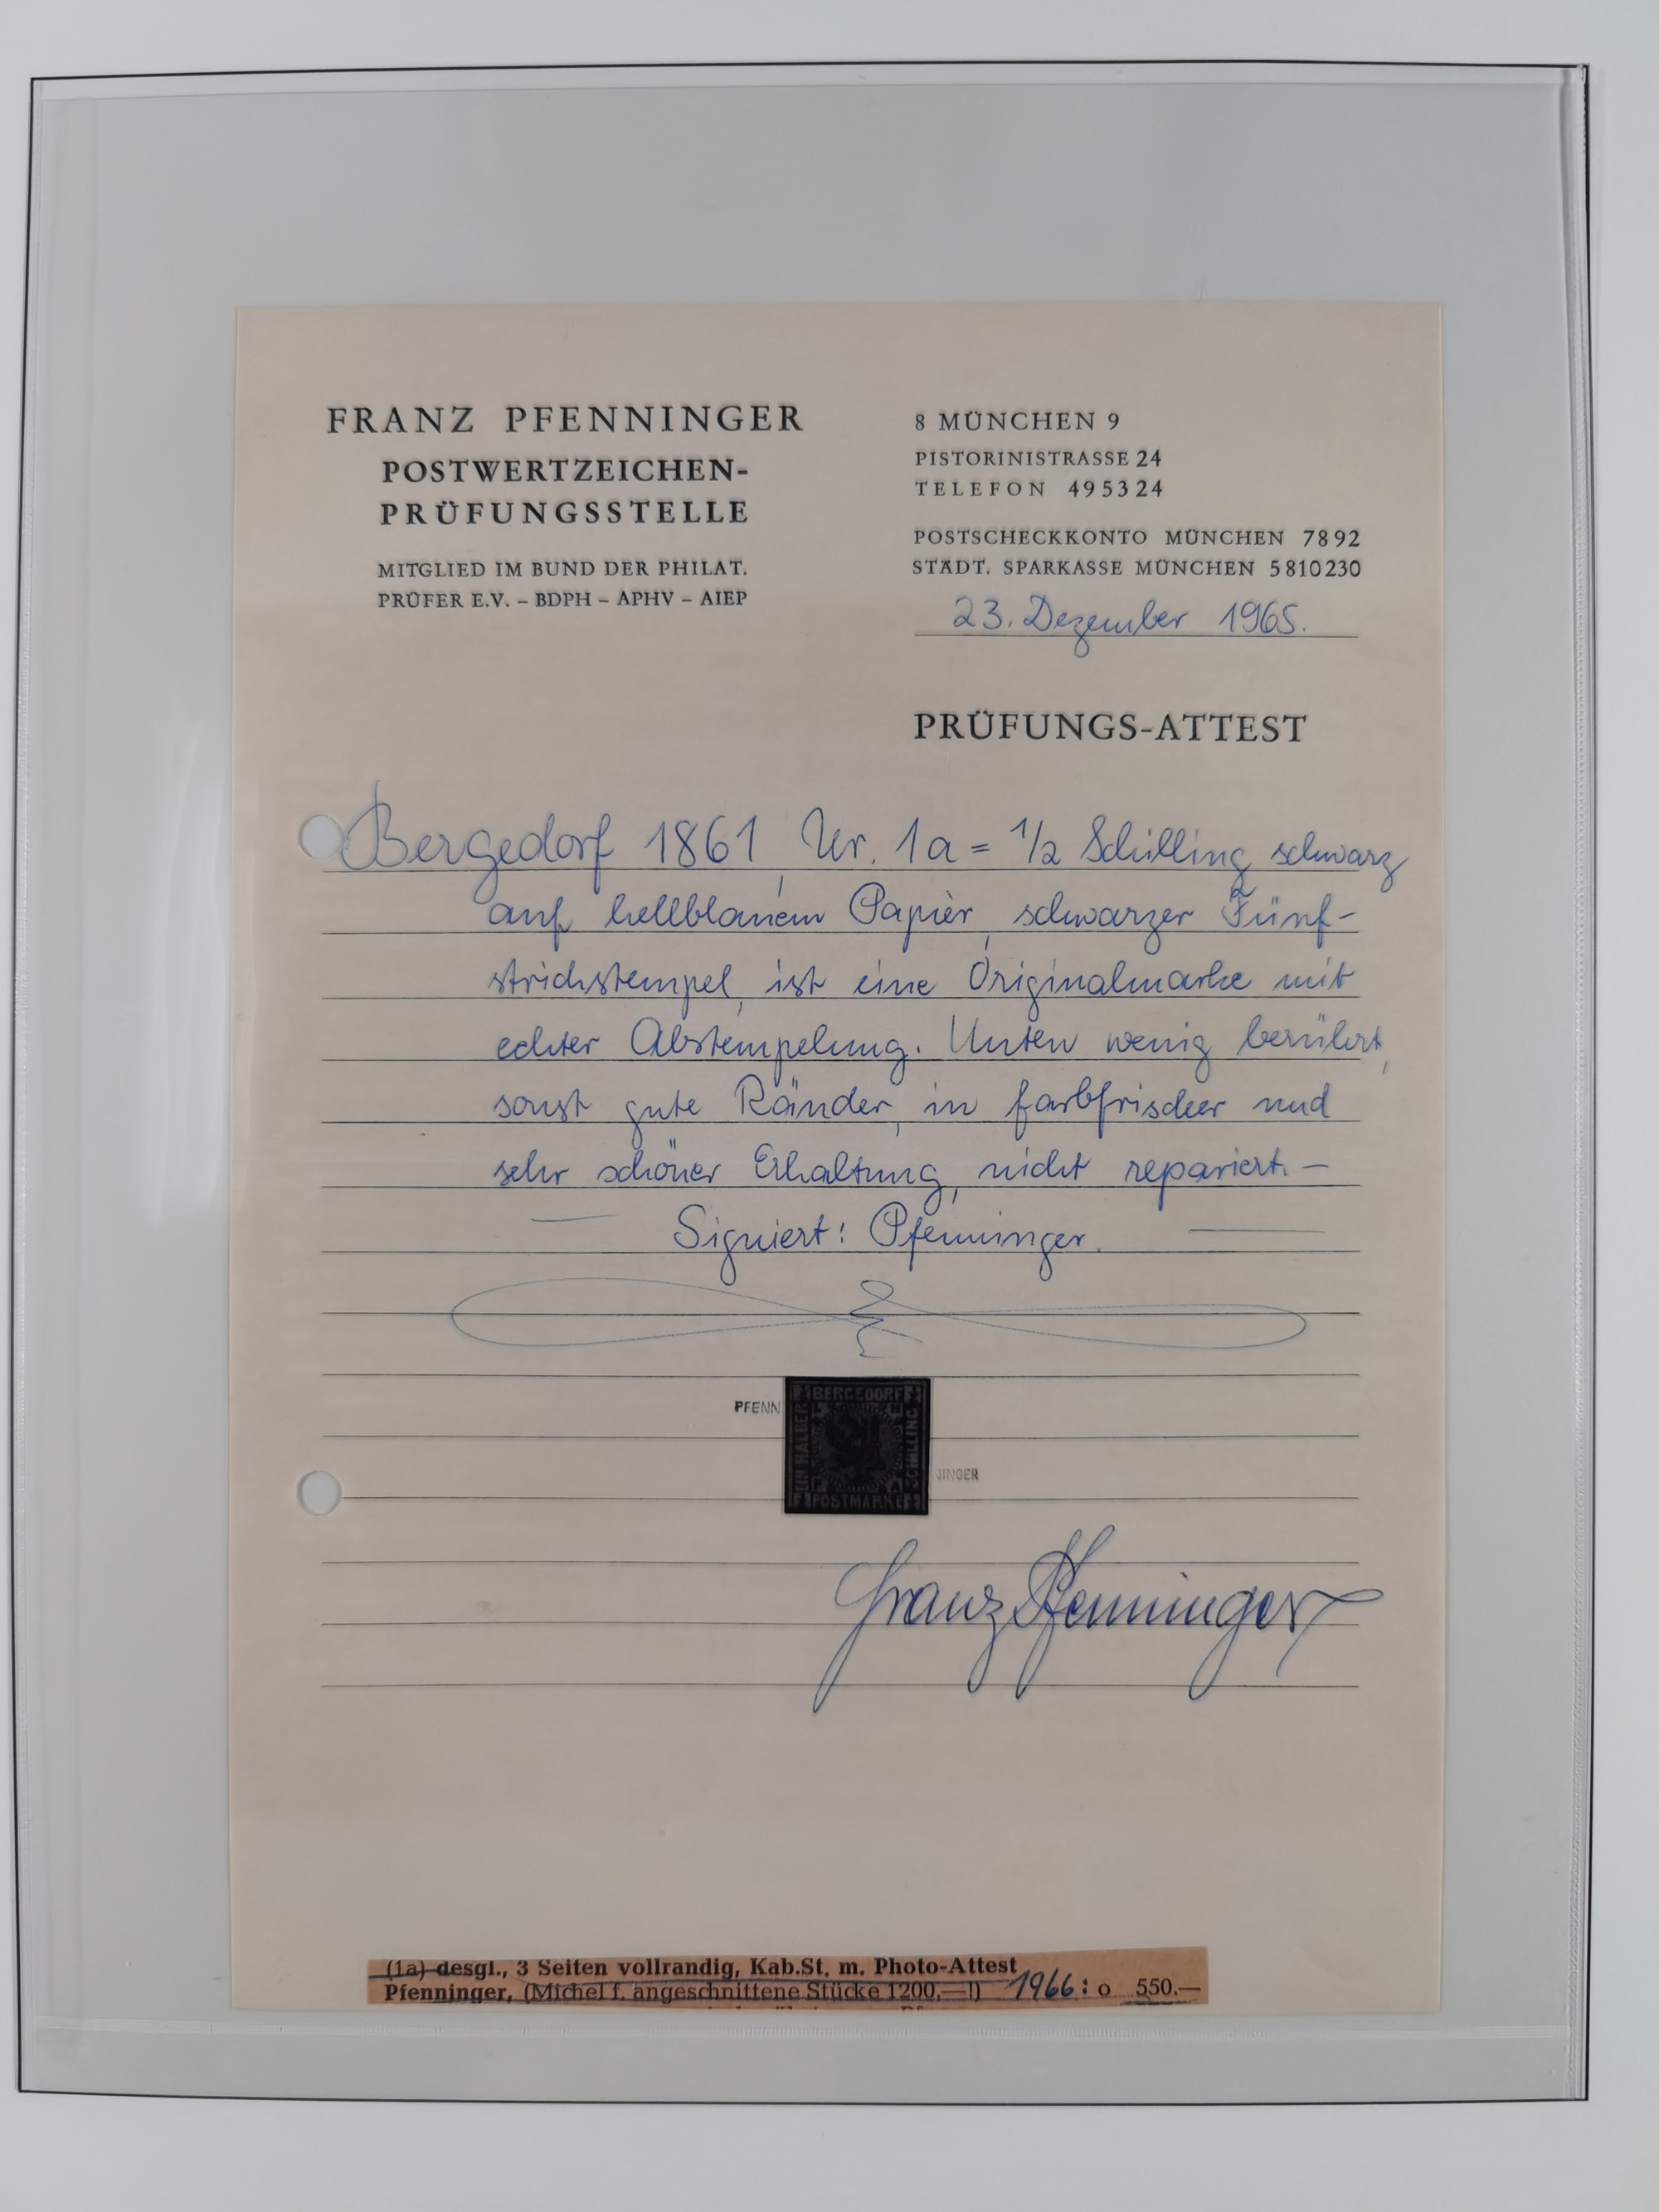 FRANZ PFENNINGER
POSTWERTZEICHEN-
PRÜFUNGSSTELLE
MITGLIED IM BUND DER PHILAT.
PRÜFER E.V. – BDPH – APHV – AIEP
8 MÜNCHEN 9
PISTORINISTRASSE 24
TELEFON 495324
POSTSCHECKKONTO MÜNCHEN 7892
STÄDT. SPARKASSE MÜNCHEN 5810230
23. Dezember 1965.
PRÜFUNGS-ATTEST
Bergedorf 1861, Nr. 1a = 1/2 Schilling schwarz
auf hellblauem Papier, schwarzer Fünf-
strichstempel, ist eine Originalmarke mit
echter Abstempelung. Unten wenig berührt,
sonst gute Ränder, in farbfrischer und
sehr schöner Erhaltung, nicht repariert. –
— Signiert: Pfenninger. —
BERGEDORF
EIN HALBER
SCHILLING
POSTMARKE
PFENN
NINGER
Franz Pfenninger
(1a) desgl., 3 Seiten vollrandig, Kab.St. m. Photo-Attest
Pfenninger, (Michel f. angeschnittene Stücke 1200,—!) 1966: o 550.—